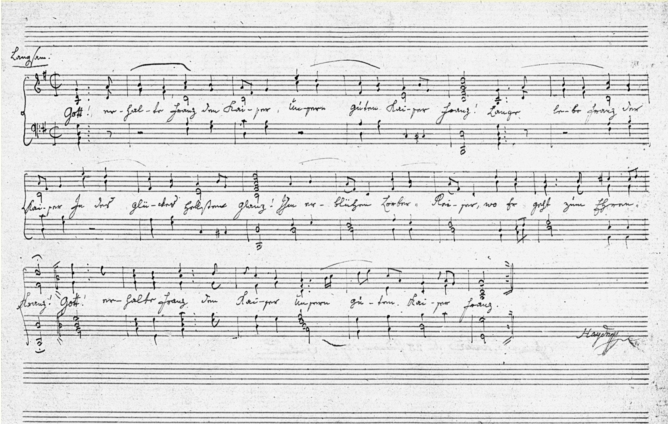 Langsam.
Gott! er-hal-te Franz den Kai-ser, Unsern guten Kai-ser Franz! Lange le-be Franz der
Kai-ser In des Glü-ckes hellstem Glanz! Ihm er-blühen Lorber-Rei-ser, wo Er geht zum Ehren-
kranz! Gott! er-halte Franz den Kai-ser Unsern gu-ten Kai-ser Franz.
Haydn